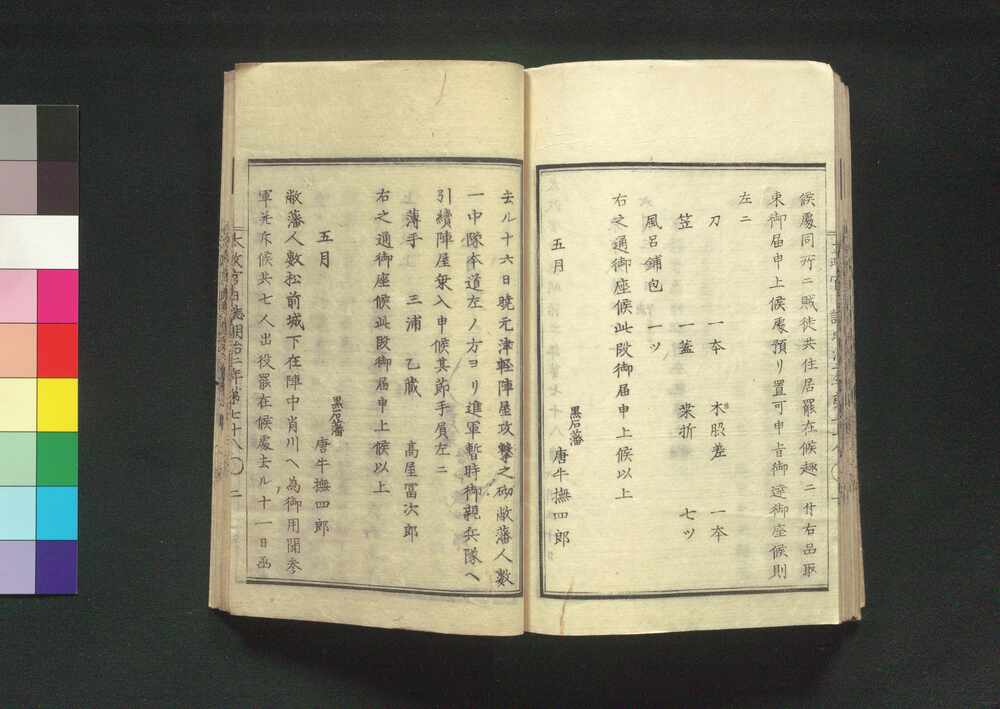 候處同所ニ賊徒共住居罷在候趣ニ付右品取
東御届申上候處預リ置可申旨御達御座候則
左ニ
刀 一本 木脇差 一本
笠 一蓋 菜折 七ツ
風呂鋪包 一ツ
右之通御座候此段御届申上候以上
五月 黒石藩 唐牛撫四郎
去ル十六日曉元津軽陣屋攻撃之砌敝藩人數
一中隊本道左ノ方ヨリ進軍暫時御親兵隊ヘ
引續陣屋乗入申候其節手負左ニ
薄手 三浦乙藏 高屋冨次郎
右之通御座候此段御届申上候以上
五月 黒石藩 唐牛撫四郎
敝藩人數松前城下在陣中肖川ヘ為御用聞参
軍并斥候共七人出役罷在候處去ル十一日函
太政官日誌明治二年第七十八 〇 二